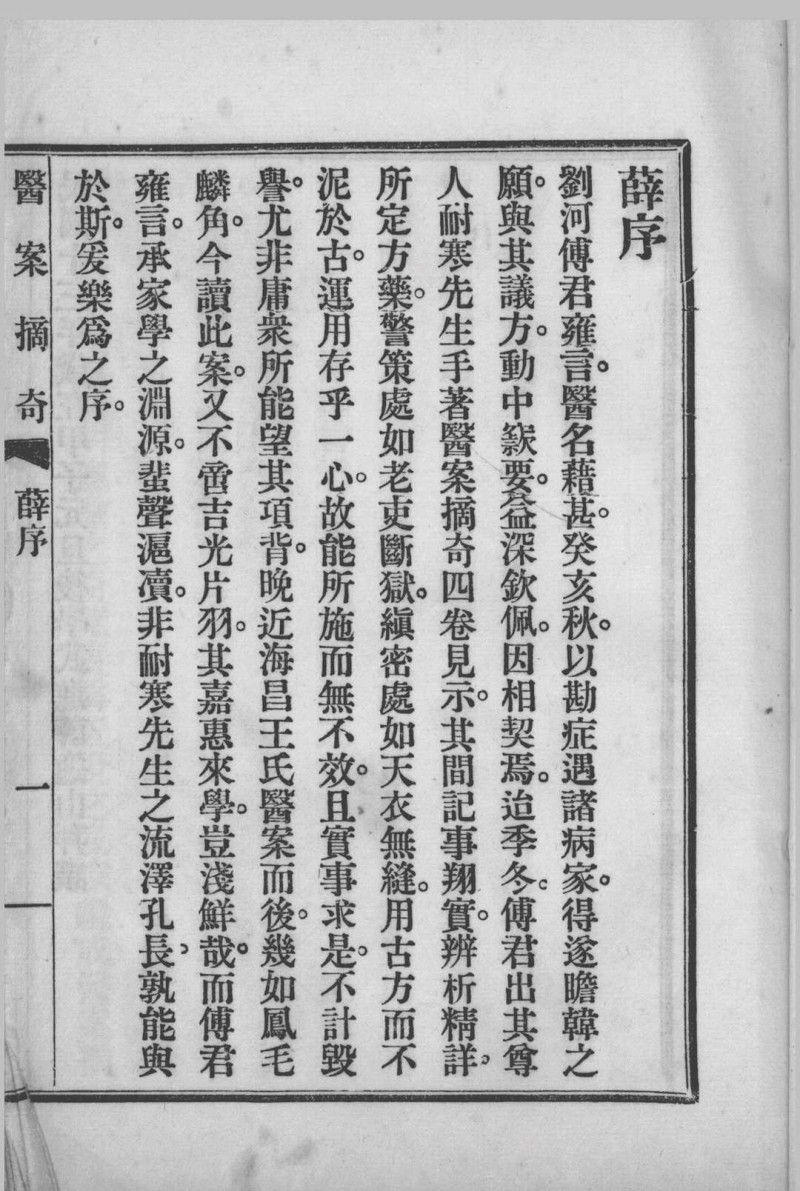 薛序
劉河傅君雍言。醫名藉甚。癸亥秋。以勘症遇諸病家。得遂瞻韓之
願。與其議方。動中窾要。益深欽佩。因相契焉。迨季冬。傅君出其尊
人耐寒先生手著醫案摘奇四卷見示。其間記事翔實。辨析精詳、
所定方藥。警策處如老吏斷獄。縝密處如天衣無縫。用古方而不
泥於古。運用存乎一心。故能所施而無不效。且實事求是。不計毀
譽。尤非庸衆所能望其項背。晚近海昌王氏醫案而後。幾如鳳毛
麟角。今讀此案。又不啻吉光片羽。其嘉惠來學。豈淺鮮哉。而傅君
雍言。承家學之淵源。蜚聲滬瀆。非耐寒先生之流澤孔長、孰能與
於斯。爰樂爲之序。
醫案摘奇 薛序 一